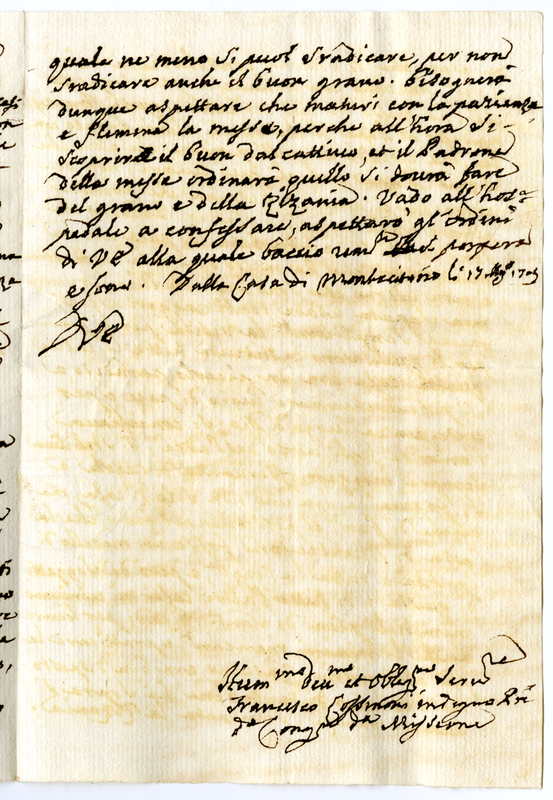 quale ne meno si può sradicare, per non
sradicare anche il buon grano. bisognerà
dunque aspettare che maturi con la pazienza
e flemma la messe, perche all'hora si
scoprirà il buon dal cattivo, et il Padrone
della messe ordinarà quello si dovrà fare
del grano e della Zizania. Vado all'hos-
pedale a confessare, aspettarò gl'ordini
di VE alla quale baccio la porpora
e sono. Dalla Casa di Montecitorio li 17
VE
Hum.mo Div.mo et Oblig.mo Serv.re
Francesco indegno
d.a Cong.ne d.a Missione